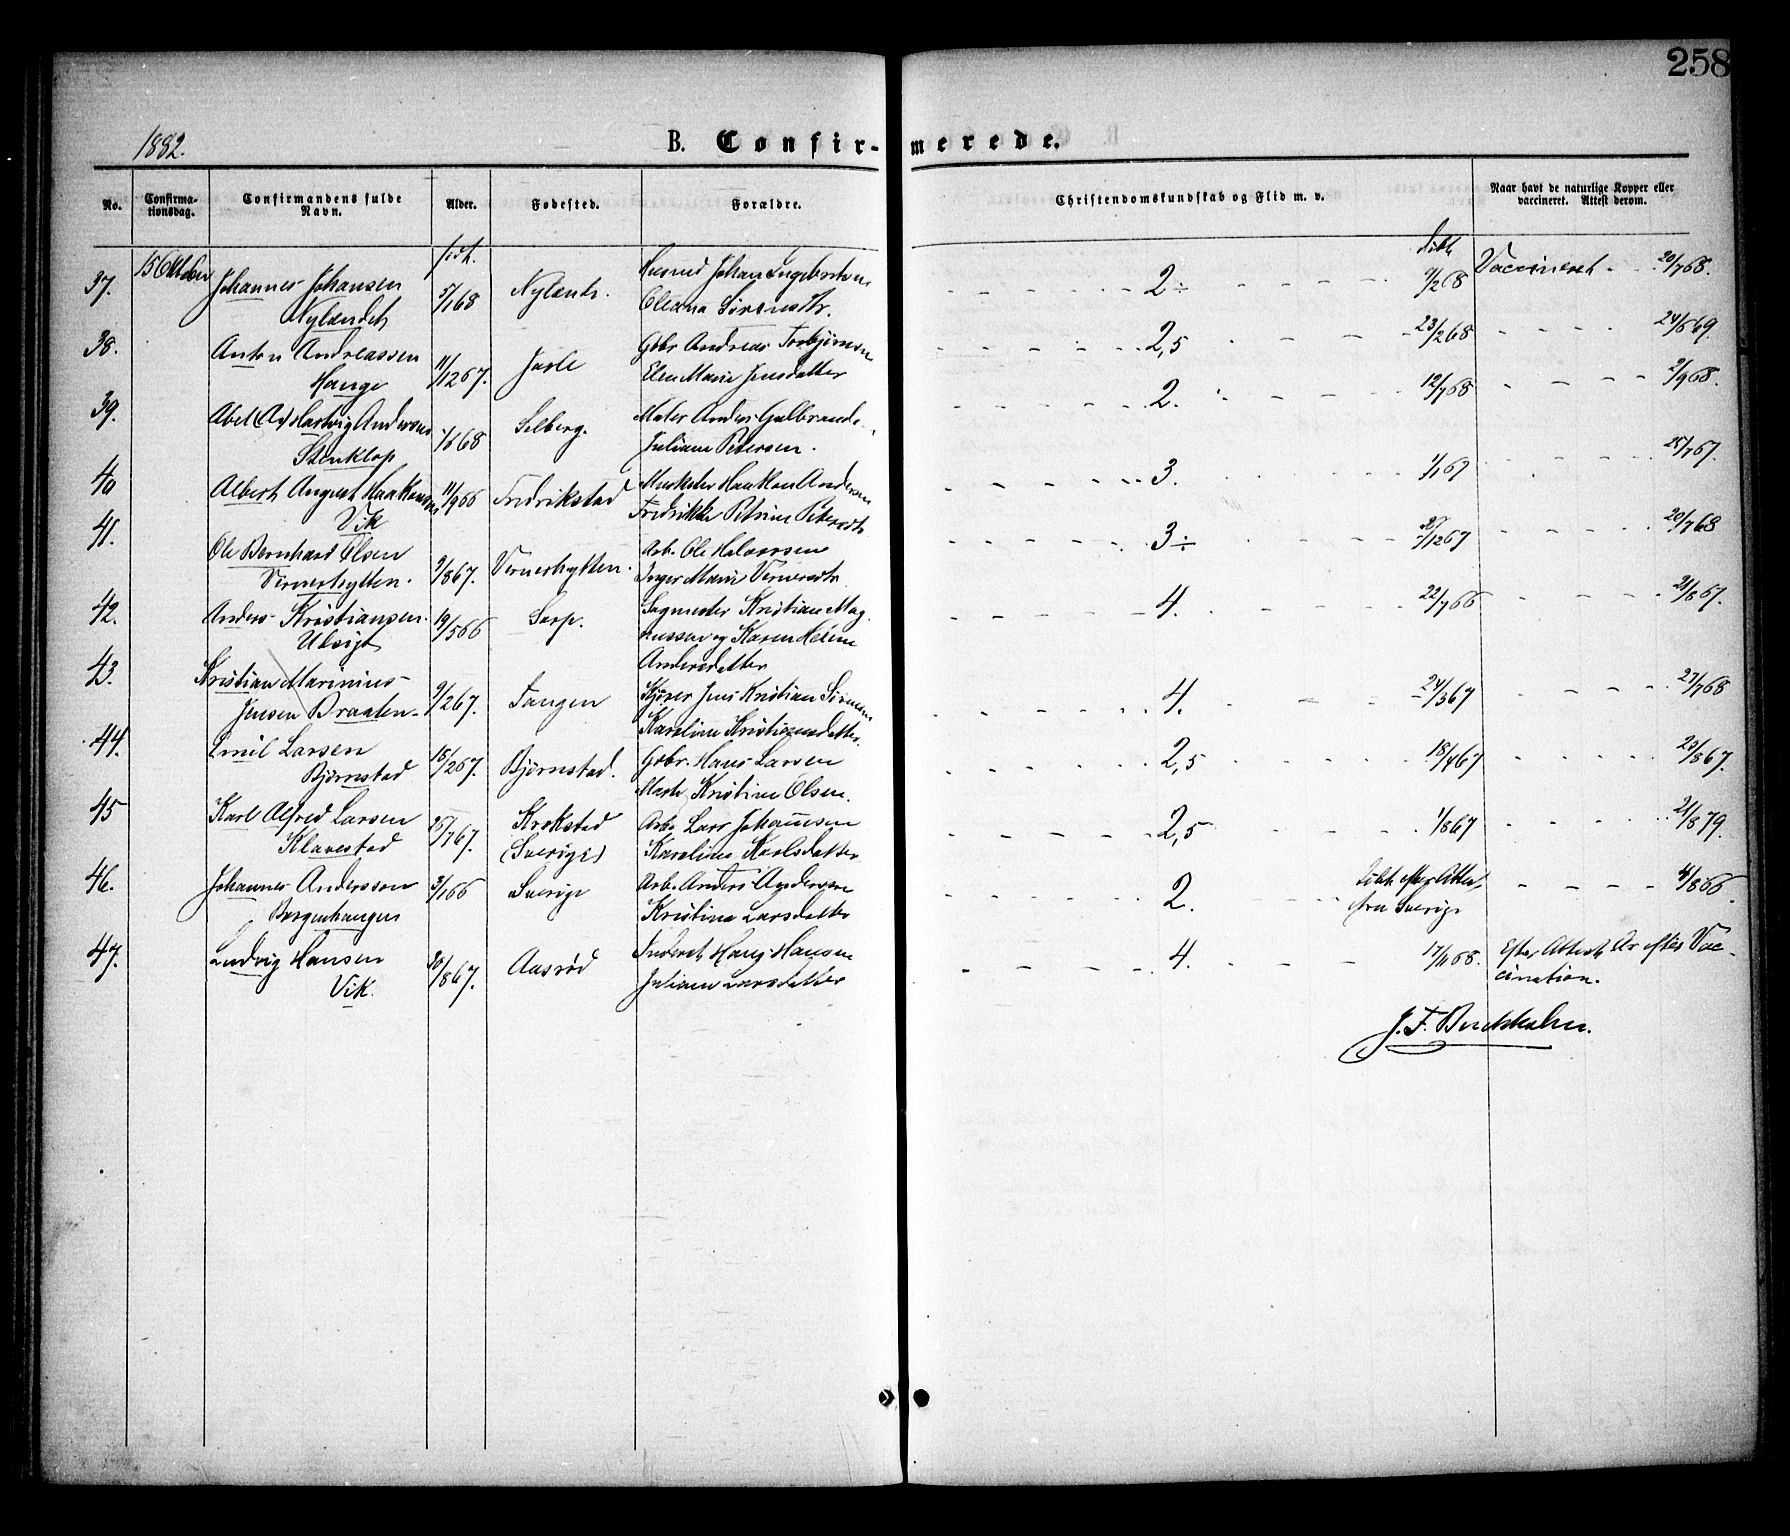 258
1882.
B. Confir-merede.
No.
Confirma-tionsdag.
Confirmandens fulde Navn.
Alder.
Fødested.
Forældre.
Christendomskundskab og Flid m. v.
Naar havt de naturlige Kopper eller vaccineret. Attest derom.
37. 15 Oktober Johannes Johansen 5/1 68 Husmd Johan Ingebretsen 2÷ 7/2 68 Vaccineret 20/7 68.
Nylændet Oleana Sørensdtr.
38. Anton Andreassen 11/12 67. Gbr. Andreas Torbjørnsen 2,5 23/2 68 24/6 69.
Hauge Elen Marie Jensdatter
39. Abel Hartvig Anders 1/6 68 Selberg. Maler Anders Gulbrands 2. 12/7 68 2/9 68.
Stenklop Juliane Petersen.
40 Albert August Haakons 11/9 66 Fredrikstad Haakon Andersen 3. 1/1 67 25/7 67.
Vik Fredrikke Petrine
41. Ole Bernhard Olsen 9/8 67. Vernerhytten. Arb. Ole Halvorsen 3÷ 27/12 67 20/7 68
Vernerhytten. Inger Marie
42. Anders Kristiansen 19/5 66 Sarp. Sagmester Kristian Mag- 4. 22/7 66 21/8 67.
nussen og Karen Helene
Andersdatter
43. Kristian Marinius 9/2 67. Tangen Kjører Jens Kristian Sørensen 4. 24/3 67 27/7 68
Jensen Braaten Karoline Kristiansdatter.
44. Emil Larsen 18/2 67. Bjørnstad. Gbr. Hans Larsen 2,5 18/4 67 23/8 67.
Bjørnstad Kristine Olsen.
45 Karl Alfred Larsen 25/7 67. Krokstad Arb. Lars Johannsen 2,5 1/8 67 21/8 79.
Klavestad (Sverige) Karoline Karlsdatter
46. Johannes Andersson 3/1 66 Sverige Arb. Anders Andersen 2. Døbt efter Attest 4/8 66
Borgenhaugen Kristina Larsdatter fra Sverige
47. Ludvig Hansen 30/8 67. Aasrød Inderst Hans Hansen 4. 17/11 68. Efter Attest Ar efter Vac-
Vik. Juliane Larsdatter cination.
J. F. Buckholm.